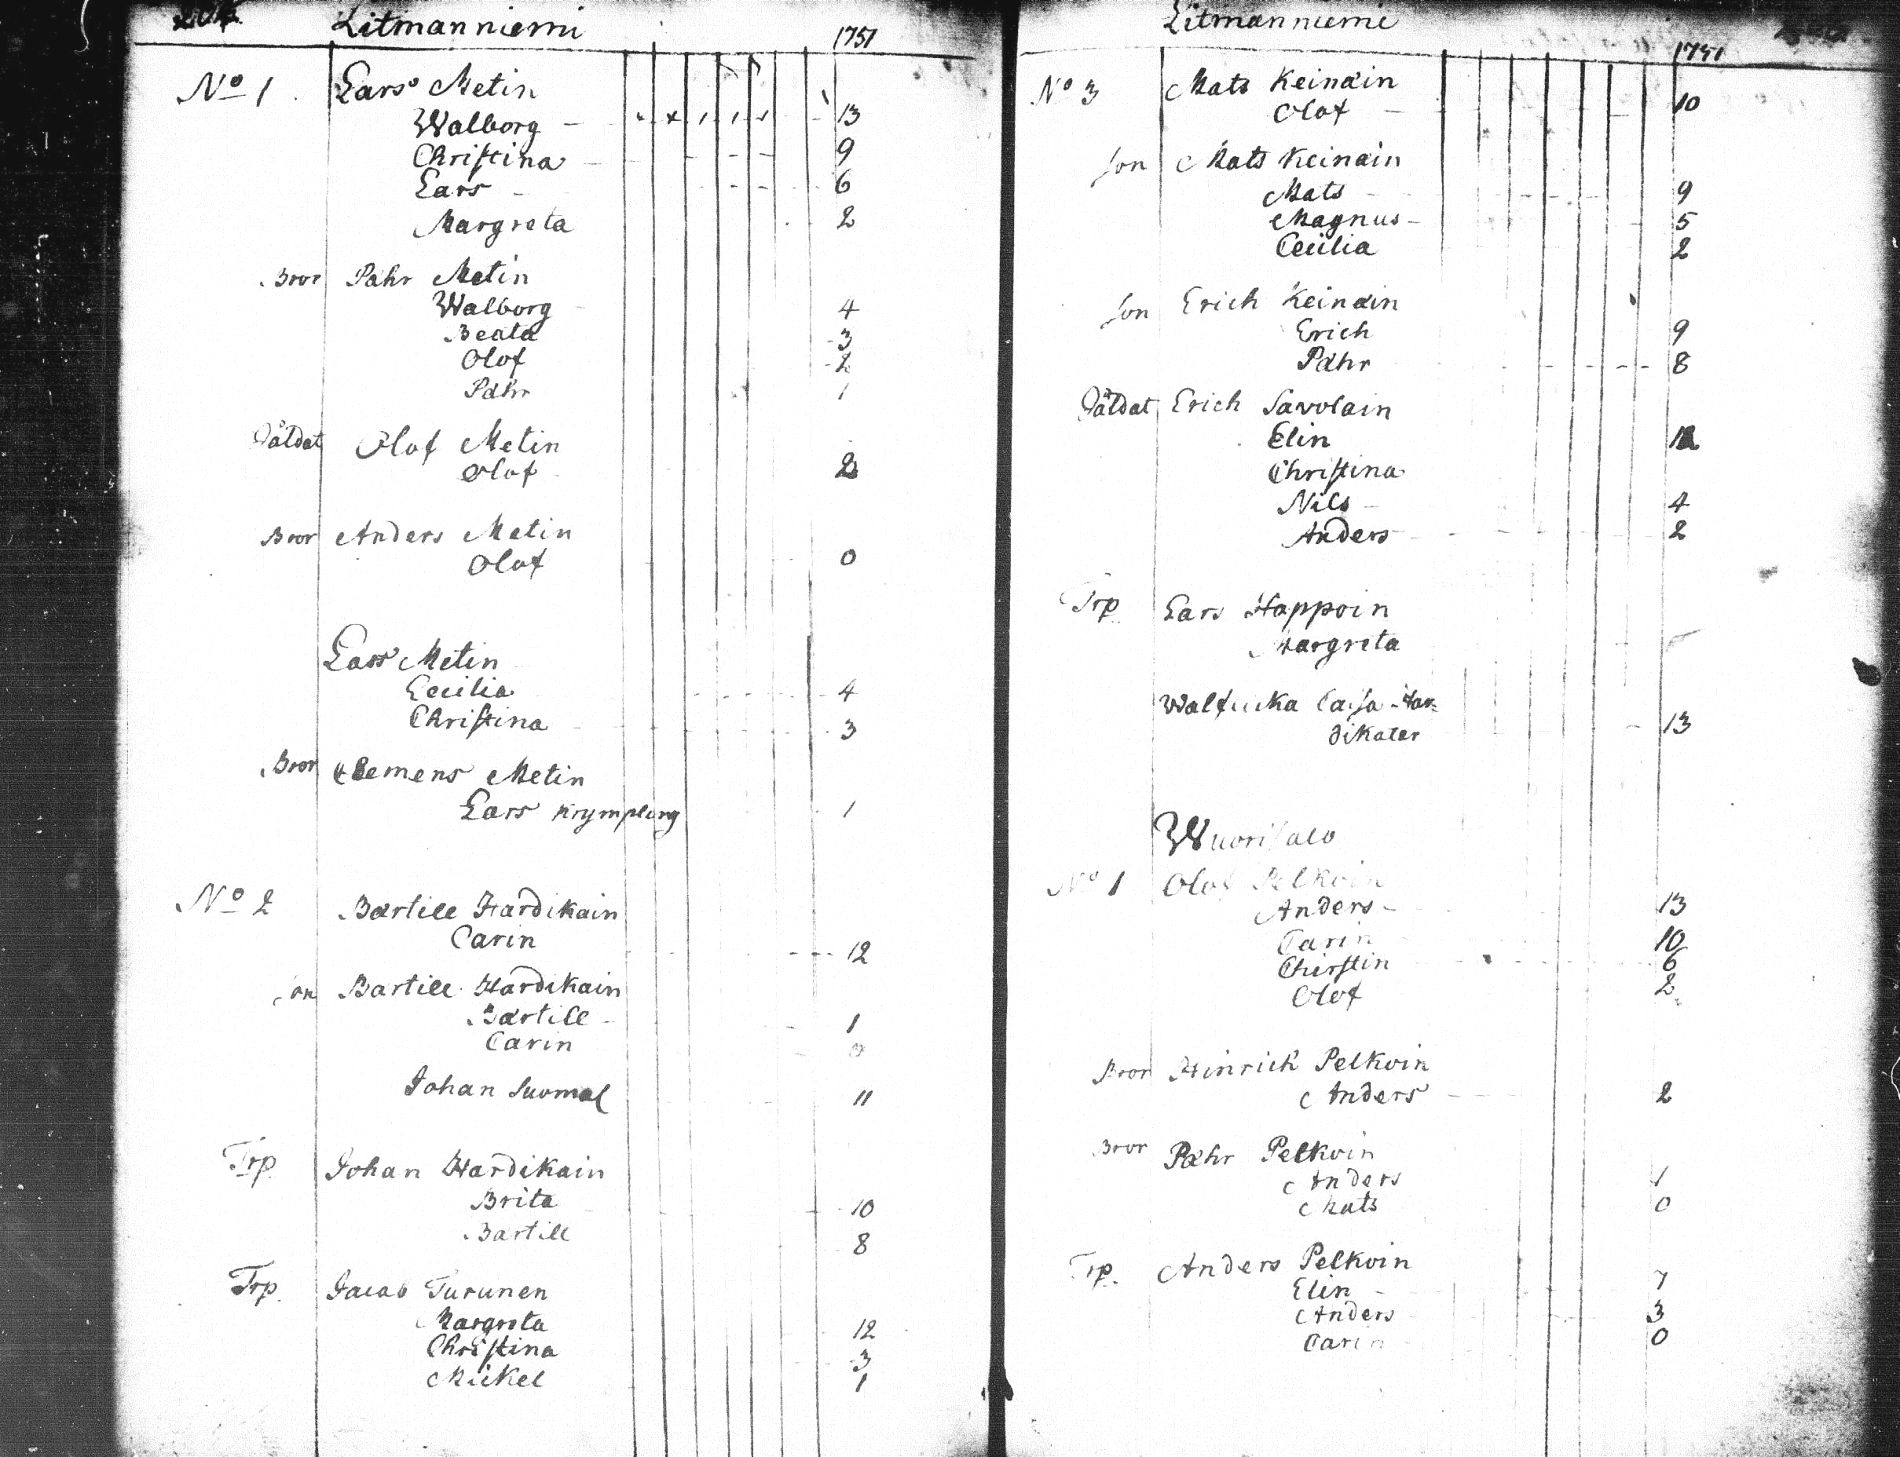 Litmanniemi 1751
No 1 Lars Metin
Walborg 13
Christina 9
Lars 6
Margreta 2
Bror Påhr Metin
Walborg 4
Beata 3
Olof 2
Påhr 1
Såldat Olof Metin
Olof 2
Bror Anders Metin
Olof 0
Lars Metin
Cecilia 4
Christina 3
Bror Clemens Metin
Lars Krympling 1
No 2 Bartill Hardikain
Carin 12
Son Bartill Hardikain
Bartill 1
Carin 0
Johan Suomal 11
Trp Johan Hardikain
Brita 10
Bartill 8
Trp. Jacob Turunen
Margreta 12
Christina 3
Mickel 1
Litmanniemi 1751
No 3 Mats Keinäin
Olof 10
Son Mats Keinäin
Mats 9
Magnus 5
Cecilia 2
Son Erich Keinäin
Erich 9
Påhr 8
Såldat Erich Savolain
Elin
Christina
Nils 4
Anders 2
Trp. Lars Happoin
Margreta
Caisa Har=
dikater 13
Wuorisalo
No 1 Olof Pelkoin
Anders 13
Carin 10
Chirstin 6
Olof 2
Bror Hinrich Pelkoin
Anders 2
Bror Påhr Pelkoin
Anders 1
Mats 0
Trp. Anders Pelkoin
Elin 7
Anders 3
Carin 0